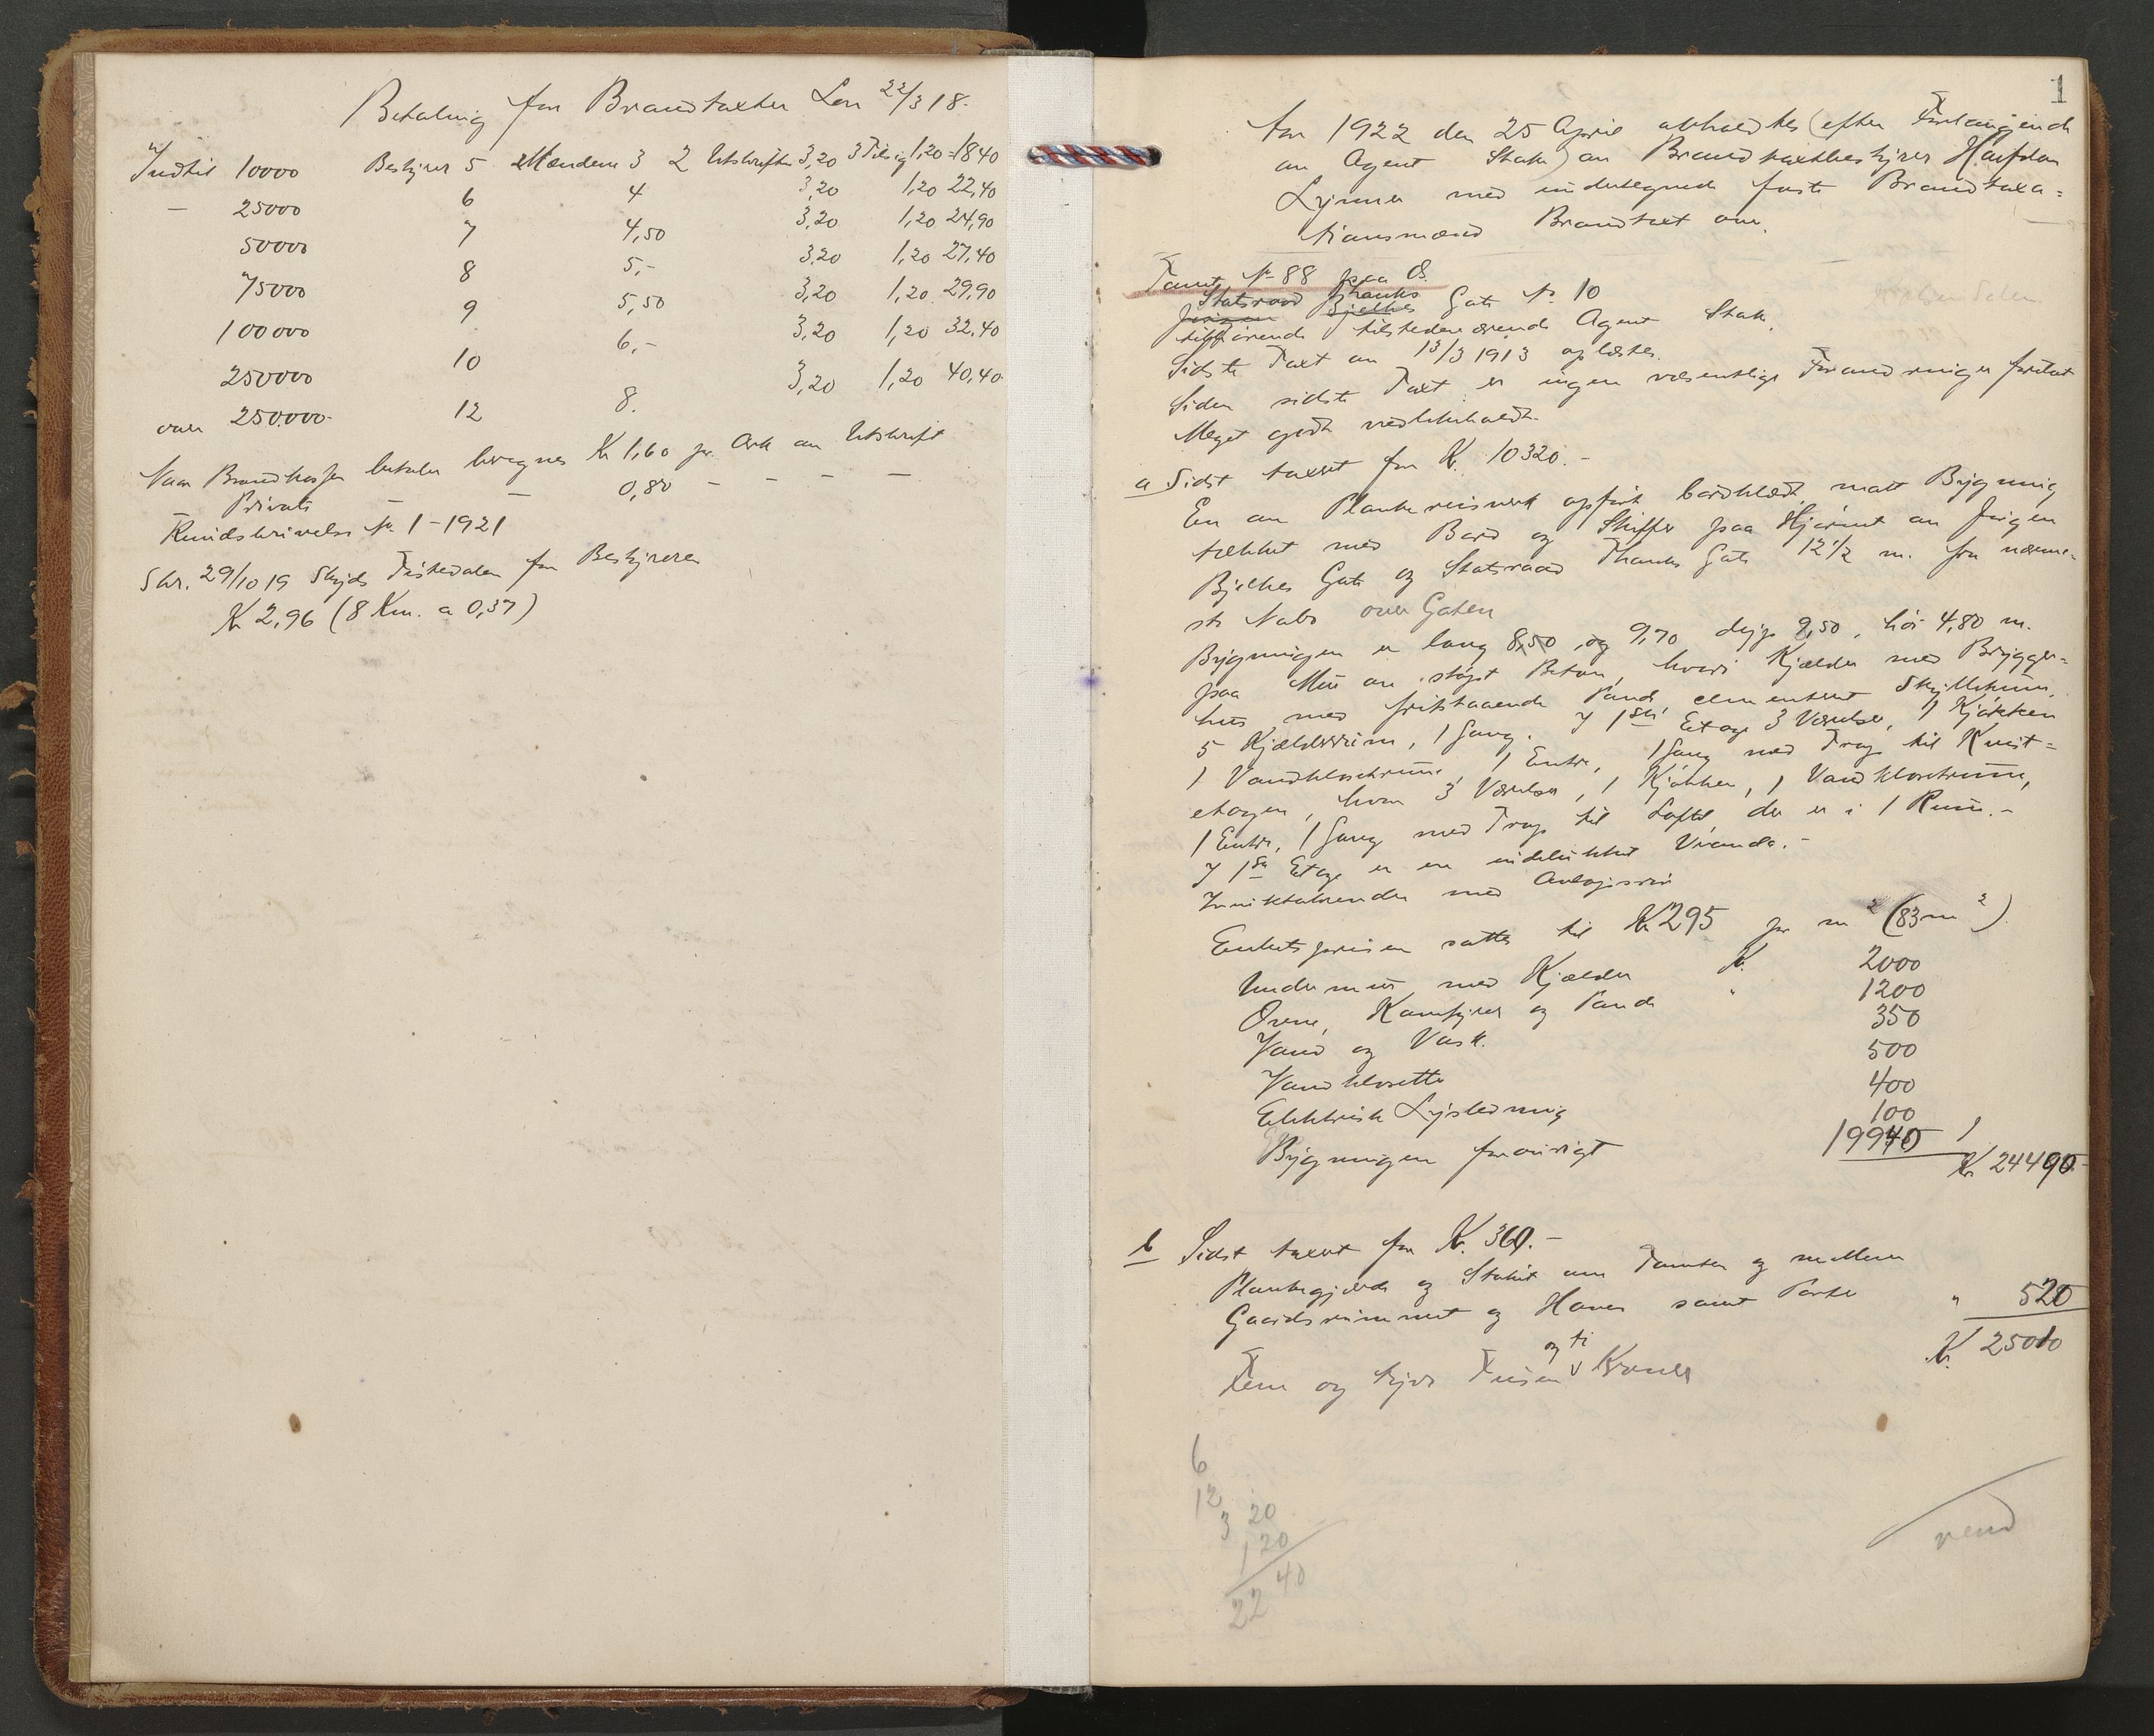 Betaling for Brandtaxter Lov 22/3 18.
Indtil 10000 Bestyrer 5 Mændene 3 2 Utskrifter 3,20 3 1,20 = 18.40
— 25000 6 4 3,20 1,20 22,40
50000 7 4,50 3,20 1,20 24,90
75000 8 5,- 3,20 1,20 27,40
100000 9 5,50 3,20 1,20 29,90
250000 10 6,- 3,20 1,20 32,40
over 250.000 12 8. 3,20 1,20 40,40
Naar Brandkassen betaler beregnes Kr 1,60 pr. Ark av Utskrift
Private — — 0,80 — — — —
Rundskrivelse No 1 - 1921
Skr. 29/10 19 Skyds Tistedalen for Bestyreren
Kr 2,96 (8 Km. a 0,37)
1
Aar 1922 den 25 April avholdtes (efter Forlangende
av Agent Stak) av Brandtaxtbestyrer Halfdan
Lynner med undertegnede faste Brandtaxa=
tionsmænd Brandtaxt over.
Tomt No 88 paa Ø.
Statsraad Thanks
Jørgen Bjelkes Gate No 10
tilhørende tilstedeværende Agent Stak.
Sidste Taxt av 13/3 1913 oplæstes.
Siden sidste Taxt er ingen væsentlige Forandringer foretat
Meget godt vedlikeholdt.
a Sidst taxert for Kr. 10320.-
En av Plankereisverk opført bordklædt, malt Bygning
tækket med Bord og Skiffer paa Hjørnet av Jørgen
Bjelkes Gate og Statsraad Thanks Gate 12 1/2 m. fra nærme=
ste Nabo over Gaten
Bygningen er lang 8,50 og 9,70 dyp 9,50, høi 4,80 m.
paa Mur av støpt Beton, hvori Kjælder med Brygger=
hus med fritstaaende Pande cementert Skyllekum,
5 Kjælderrum, 1 Gang. I 1ste Etage 3 Værelser, 1 Kjøkken
1 Vandklosetrum, 1 Entre, 1 Gang med Trap til Kvist=
etagen, hvor 3 Værelser, 1 Kjøkken, 1 Vandklosetrum,
1 Entre, 1 Gang med Trap til Loftet, der er i 1 Rum.-
I 1ste Etage er en indelukket Veranda.-
med
Enhetsprisen sættes til Kr 295 pr m2 (83 m2)
Undermur med Kjælder Kr. 2000
Ovne, Komfyrer og Pande " 1200
Vand og Vask. 350
Vandklosetter 500
Elektrisk Lysledning 400
100
Bygningen forøvrigt 19940
Kr. 24490
b Sidst taxert for Kr. 360.-
Plankegjærde og Stakit om Tomten og mellem
Gaardsrummet og Haven samt Porter " 520
Kr. 25010
og ti
Fem og tyve Tusen v Kroner
6
12
3 20
1 20
22 40
vend